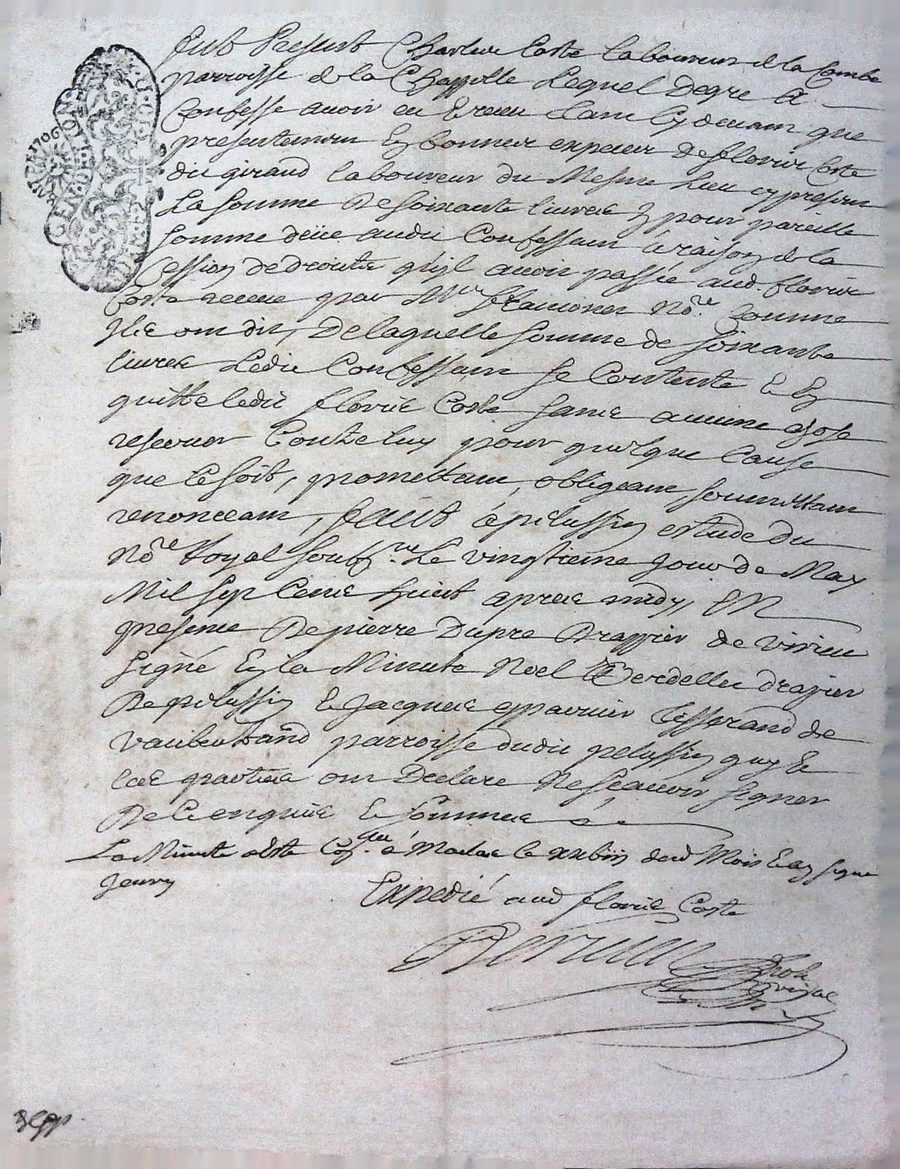 Fut Present Charles Coste laboureur de la Combe
parroisse de la Chappelle Lequel Degre A
Confesse avoir eu Et receu cy devant que
presentement Ey bonnes especes de florie Coste
du girand laboureur du Mesme Lieu cy present
La somme De soixante livres Ey pour pareille
somme deüe audit Confessant à raison de la
Cession de droits qu'il avoit passée aud. florie
Coste receue par Mre Nore Comme
Ils ont dit, De laquelle somme de soixante
livres Ledit Confessant se Contente Et Ey
quitte ledit florie Coste sans aucune chose
reserver Contre luy pour quelque Cause
que Ce soit, promettant, obligeant soumettant
renonceant, faict à pelussin estude du
Nore Royal soubsne Le vingtieme Jour de May
Mil sept Cents huict apres midy, EN
presence De pierre Dupre Drappier de virieu
signé Ey la Minute Noel drapier
De pelussin Et Jacques tisserand de
parroisse dudit pelussin quy Et
les parties ont Declare Ne scavoir signer
De Ce enquis Et sommes
La Minute a este à le dud Mois Et an signe

Expedié aud florie Coste
Royal